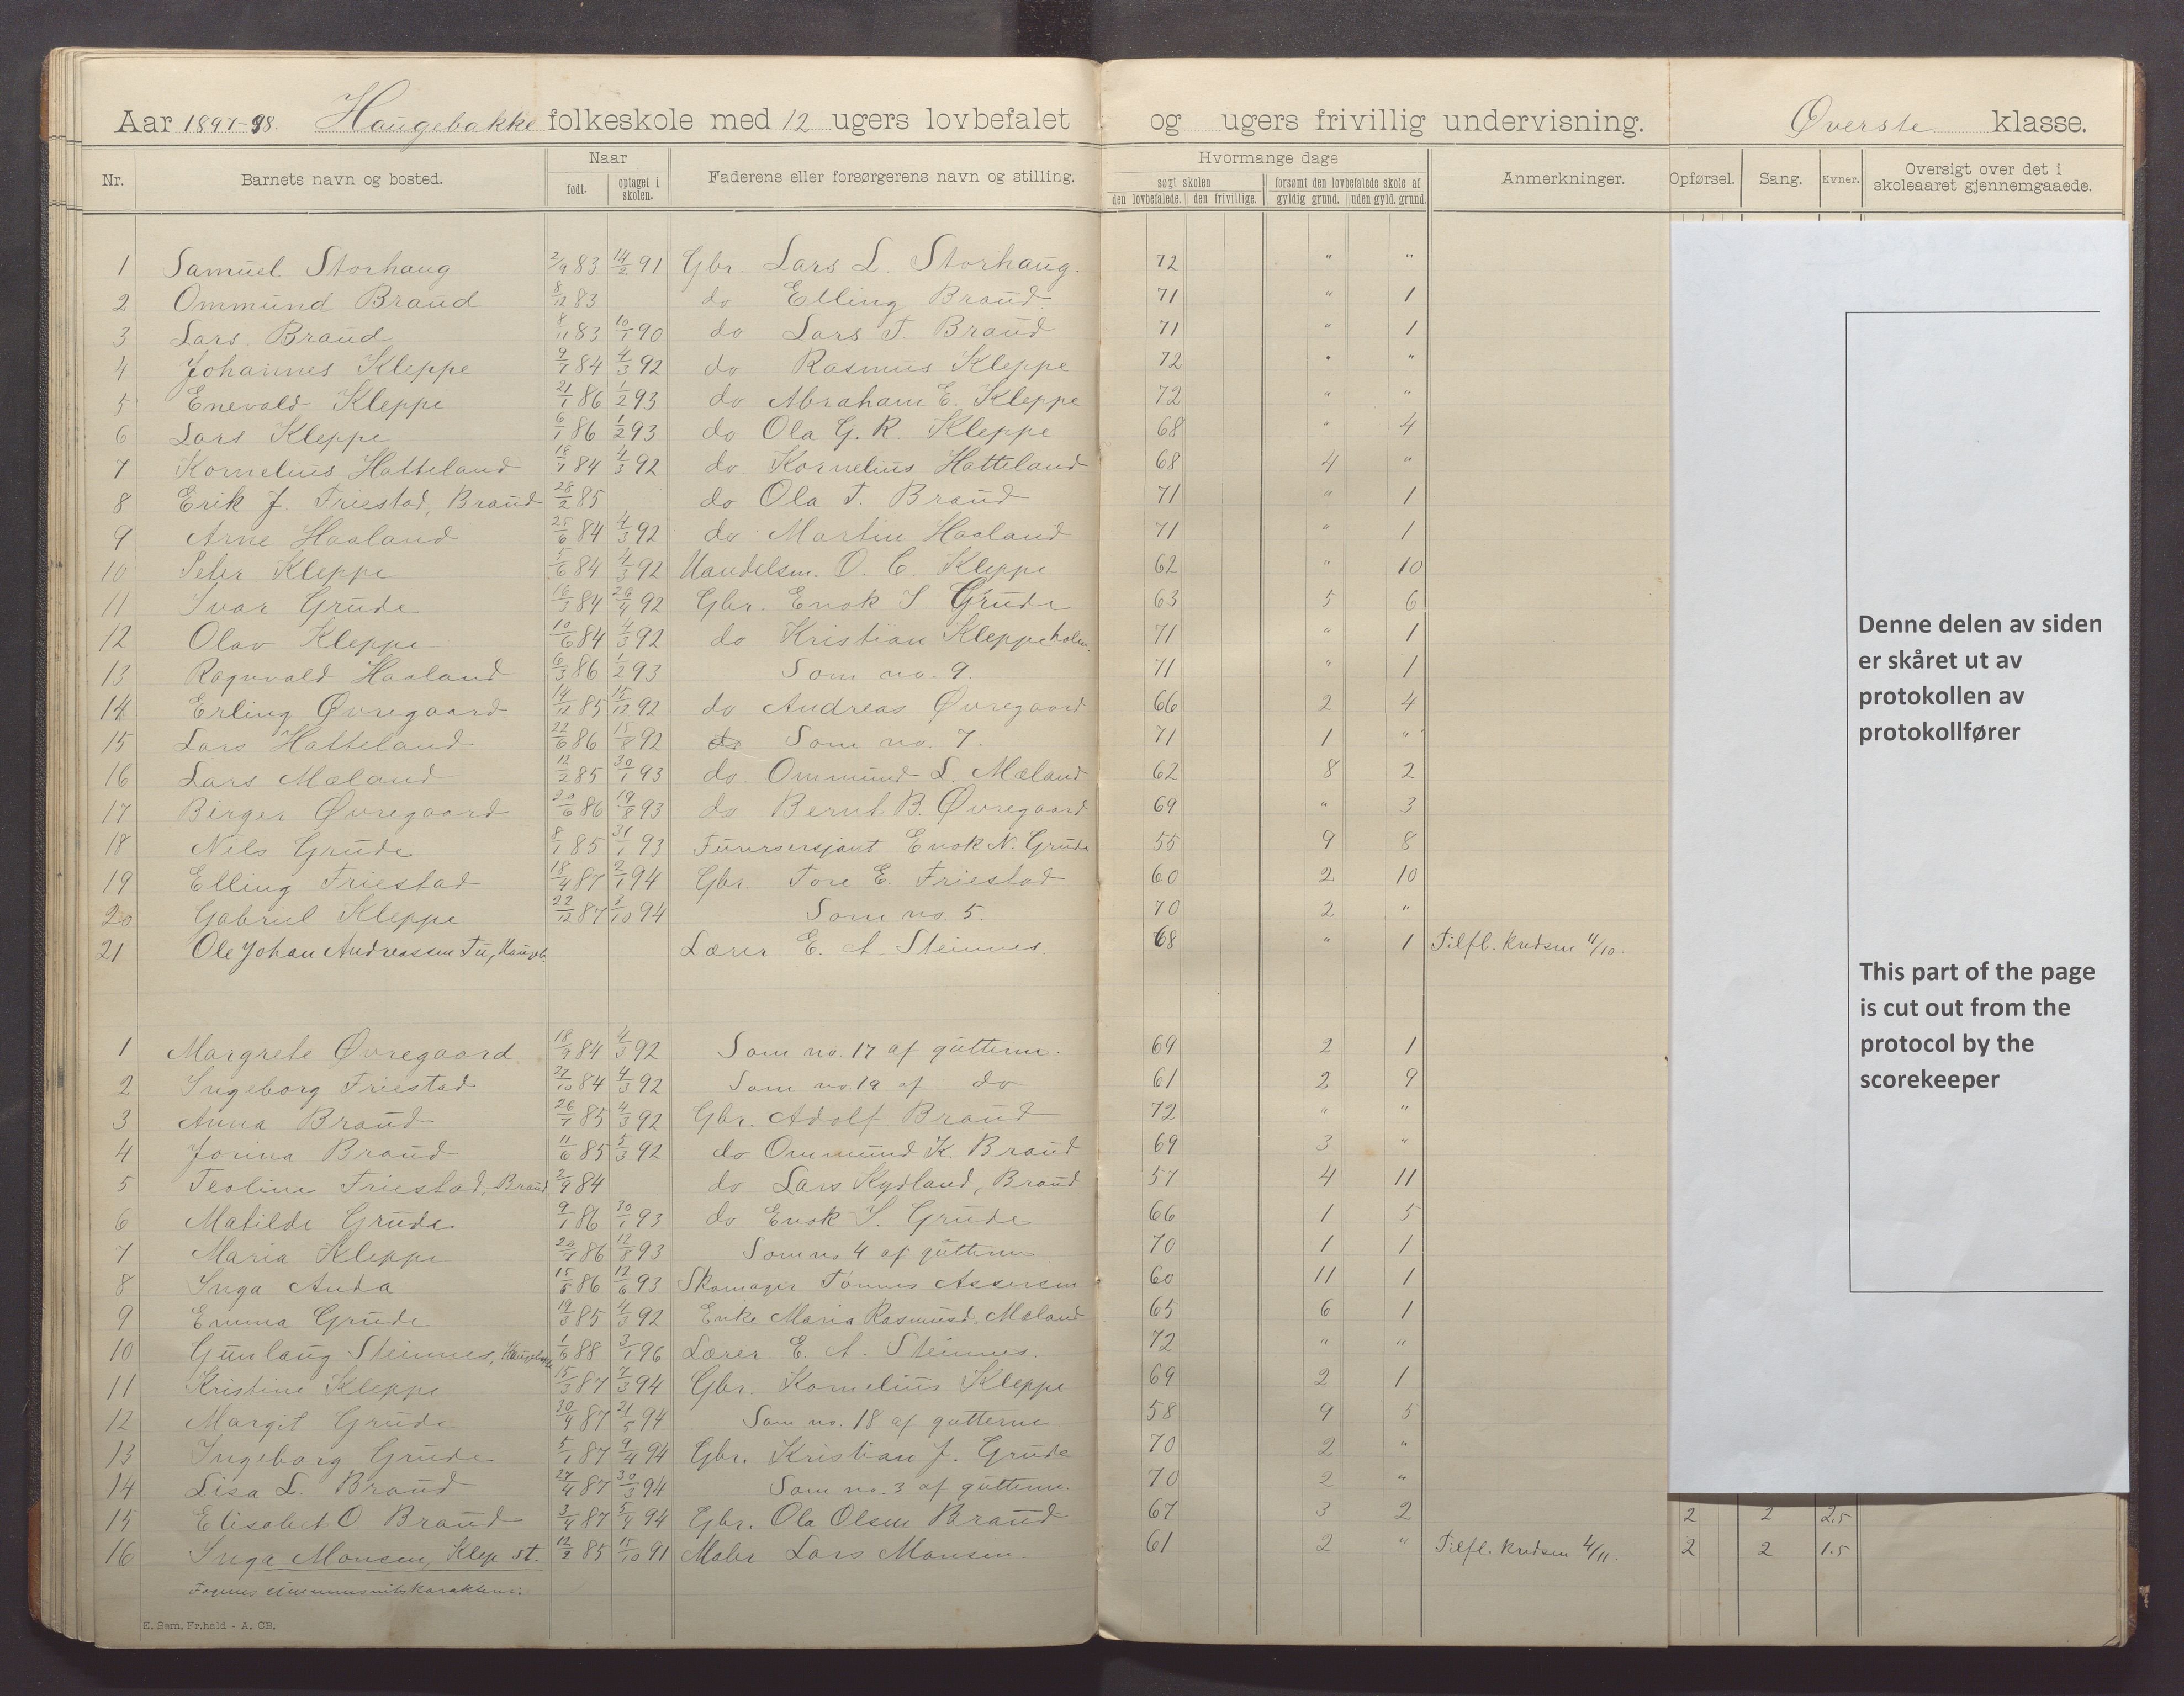 Aar 1897-98. Haugebakke folkeskole med 12 ugers lovbefalet og ugers frivillig undervisning. Øverste klasse.
Nr. Barnets navn og bosted. Naar født. optaget i skolen. Faderens eller forsørgerens navn og stilling. Hvormange dage søgt skolen den lovbefalede. den frivillige. forsømt den lovbefalede skole af gyldig grund. uden gyld. grund. Anmerkninger. Opførsel. Sang. Evner. Oversigt over det i skoleaaret gjennemgaaede.
1 Samuel Storhaug 2/9 83 14/2 91 Gbr. Lars L. Storhaug. 72 " "
2 Ommund Braud 8/12 83 do Elling Braud. 71 " 1
3 Lars Braud 8/11 83 10/1 90 do Lars T. Braud 71 " 1
4 Johannes Kleppe 9/1 84 4/3 92 do Rasmus Kleppe 72 " "
5 Enevald Kleppe 21/1 86 1/2 93 do Abraham E. Kleppe 72 " "
6 Lars Kleppe 6/1 86 1/2 93 do Ola G. R. Kleppe 68 " 4
7 Kornelius Hatteland 18/7 84 4/3 92 do Kornelius Hatteland 68 4 "
8 Erik J. Friestad, Braud 28/2 85 do Ola T. Braud 71 " 1
9 Arne Haaland 25/6 84 4/3 92 do Martin Haaland 71 " 1
10 Peter Kleppe 5/6 84 4/3 92 Handelsm. O. C. Kleppe 62 " 10
11 Ivar Grude 16/3 84 26/4 92 Gbr. Enok S. Grude 63 5 6
12 Olav Kleppe 10/6 84 4/3 92 do Kristian Kleppeholen. 71 " 1
13 Ragnvald Haaland 6/3 86 1/2 93 Som no. 9. 71 " 1
14 Erling Øvregaard 14/12 85 15/12 92 do Andreas Øvregaard 66 2 4
15 Lars Hatteland 22/6 86 15/8 92 do Som no. 7. 71 1 "
16 Lars Mæland 12/2 85 30/1 93 do Ommund L. Mæland 62 8 2
17 Birger Øvregaard 20/6 86 19/8 93 do Bernt B. Øvregaard 69 " 3
18 Nils Grude 8/1 85 31/1 93 Furersersjant Enok N. Grude 55 9 8
19 Elling Friestad 18/4 87 2/1 94 Gbr. Tore E. Friestad 60 2 10
20 Gabriel Kleppe 22/12 87 3/10 94 Som no. 5. 70 2 "
21 Ole Johan Andreassen Tu, Haugeb. Lærer E. A. Steinnes. 68 " 1 Tilfl. kredsen 11/10.
1 Margrete Øvregaard. 18/9 84 4/3 92 Som no. 17 af gutterne. 69 2 1
2 Ingeborg Friestad 27/10 84 4/3 92 Som no. 19 af do 61 2 9
3 Anna Braud 26/7 85 4/3 92 Gbr. Adolf Braud 72 " "
4 Jonina Braud 11/6 85 5/3 92 do Ommund K. Braud 69 3 "
5 Teoline Friestad, Braud 2/9 84 do Lars Kydland, Braud 57 4 11
6 Matilde Grude 9/1 86 30/1 93 do Enok S. Grude 66 1 5
7 Maria Kleppe 20/7 86 12/8 93 Som no. 4 af gutterne 70 1 1
8 Inga Anda 15/5 86 12/6 93 Skomager Tønnes Assersen 60 11 1
9 Emma Grude 19/3 85 4/3 92 Enke Maria Rasmusd. Mæland 65 6 1
10 Gunlaug Steinnes, Haugebakke 1/6 88 3/1 96 Lærer E. A. Steinnes. 72 " "
11 Kristine Kleppe 15/3 87 7/3 94 Gbr. Kornelius Kleppe 69 2 1
12 Margit Grude 30/4 87 21/5 94 Som no. 18 af gutterne. 58 9 5
13 Ingeborg Grude 5/1 87 9/4 94 Gbr. Kristian J. Grude 70 2 "
14 Lisa L. Braud 27/4 87 30/3 94 Som no. 3 af gutterne. 70 2 "
15 Elisabet O. Braud 3/4 87 5/4 94 Gbr. Ola Olsen Braud 67 3 2 2 2 2.5
16 Inga Monsen, Klep st. 12/2 85 15/10 91 Maler Lars Monsen. 61 2 " Tilfl. kredsen 4/11. 2 2 1.5
E. Sem, Fr.hald - A. CB.
Denne delen av siden
er skåret ut av
protokollen av
protokollfører
This part of the page
is cut out from the
protocol by the
scorekeeper